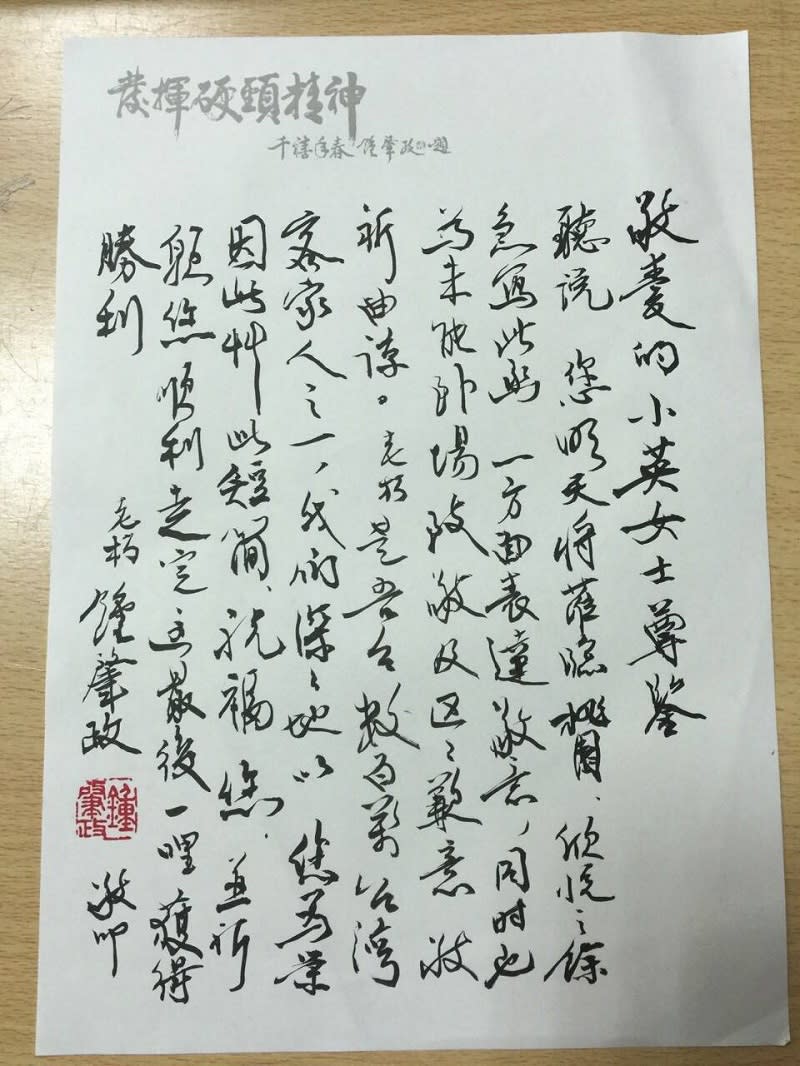 發揮硬頸精神
千禧年春 鍾肇政題
敬愛的小英女士尊鑒
聽說 您明天將蒞臨桃園、欣悅之餘
急寫此函 一方面表達敬意,同時也
為未能赴場致敬及区々歉意 敬
祈曲諒。老朽是吾台數百萬台灣
客家人之一,我们深々地以 您為榮
因此艸此短簡、祝福 您,並祈
願您順利走完这最後一哩 獲得
勝利
老朽 鍾肇政 敬叩
鍾肇政